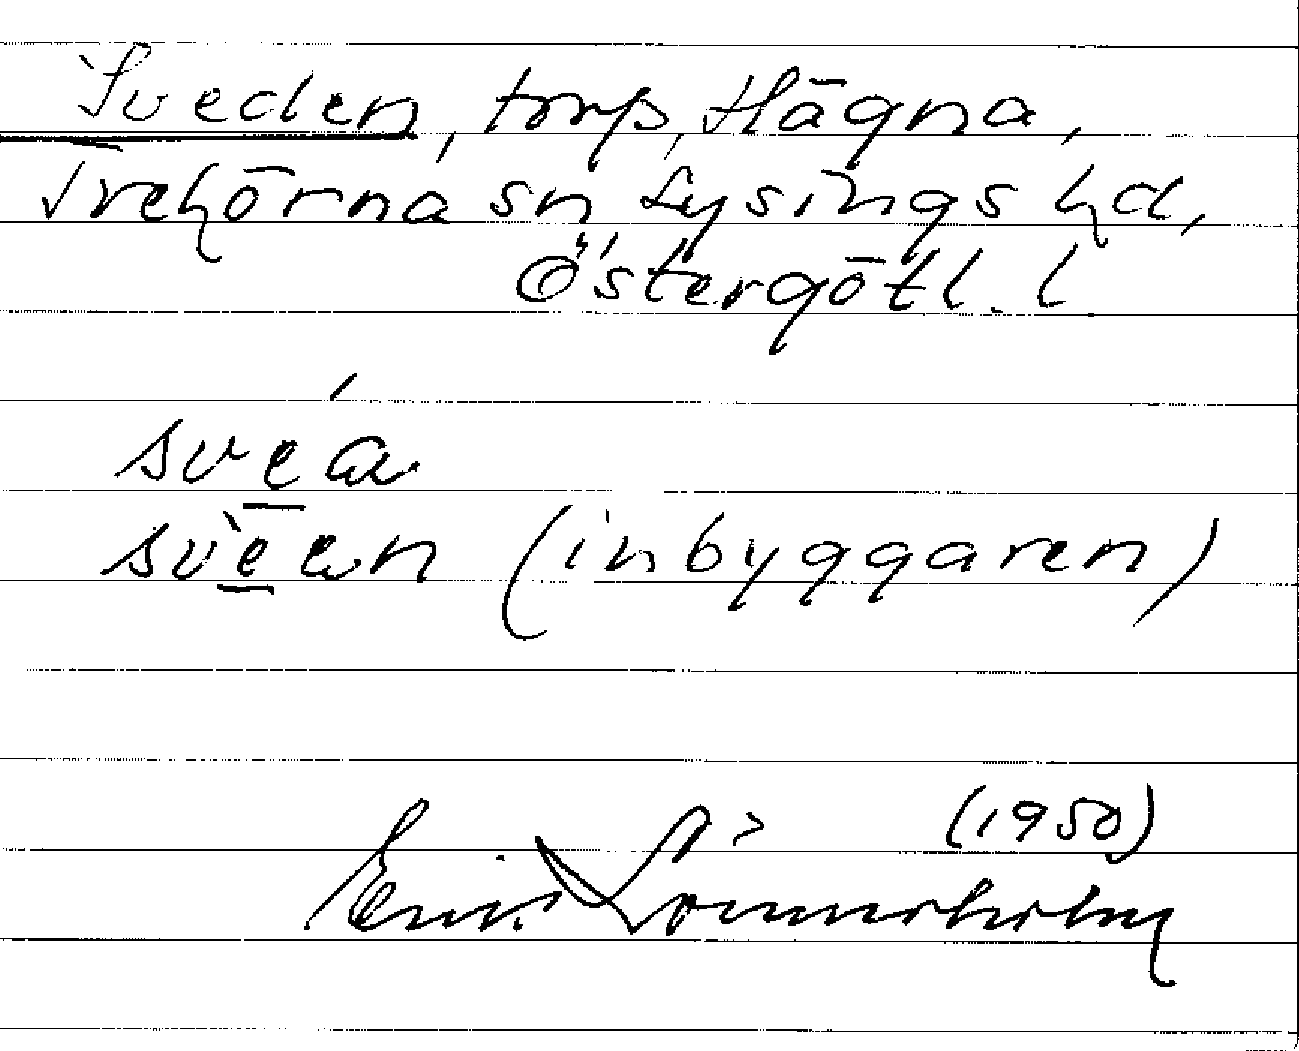 Sveden, torp, Hägna,
Trehörna sn Lysings hd,
Östergötl. l
svea
svean (inbyggaren)
(1950)
Erik Lönnerholm